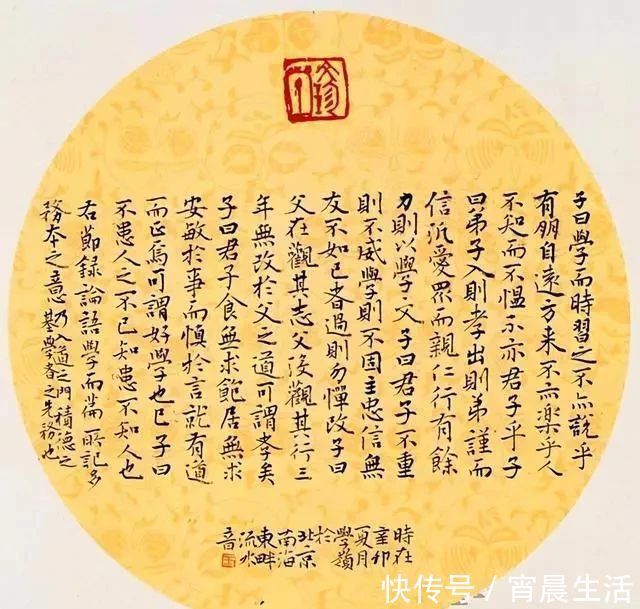 子曰學而時習之不亦說乎
有朋自遠方来不亦樂乎人
不知而不愠不亦君子乎子
曰弟子入則孝出則弟謹而
信汎愛眾而親仁行有餘
力則以學文子曰君子不重
則不威學則不固主忠信無
友不如己者過則勿憚改子曰
父在觀其志父没觀其行三
年無改於父之道可謂孝矣
子曰君子食無求飽居無求
安敏於事而慎於言就有道
而正焉可謂好學也已子曰
不患人之不己知患不知人也
右節録論語學而篇所記多
務本之意乃入道之門積德之
基學者之先務也
時在
辛卯
夏月
學嶺
於
北京
南海
東畔
流水
音
快传号/宵晨生活